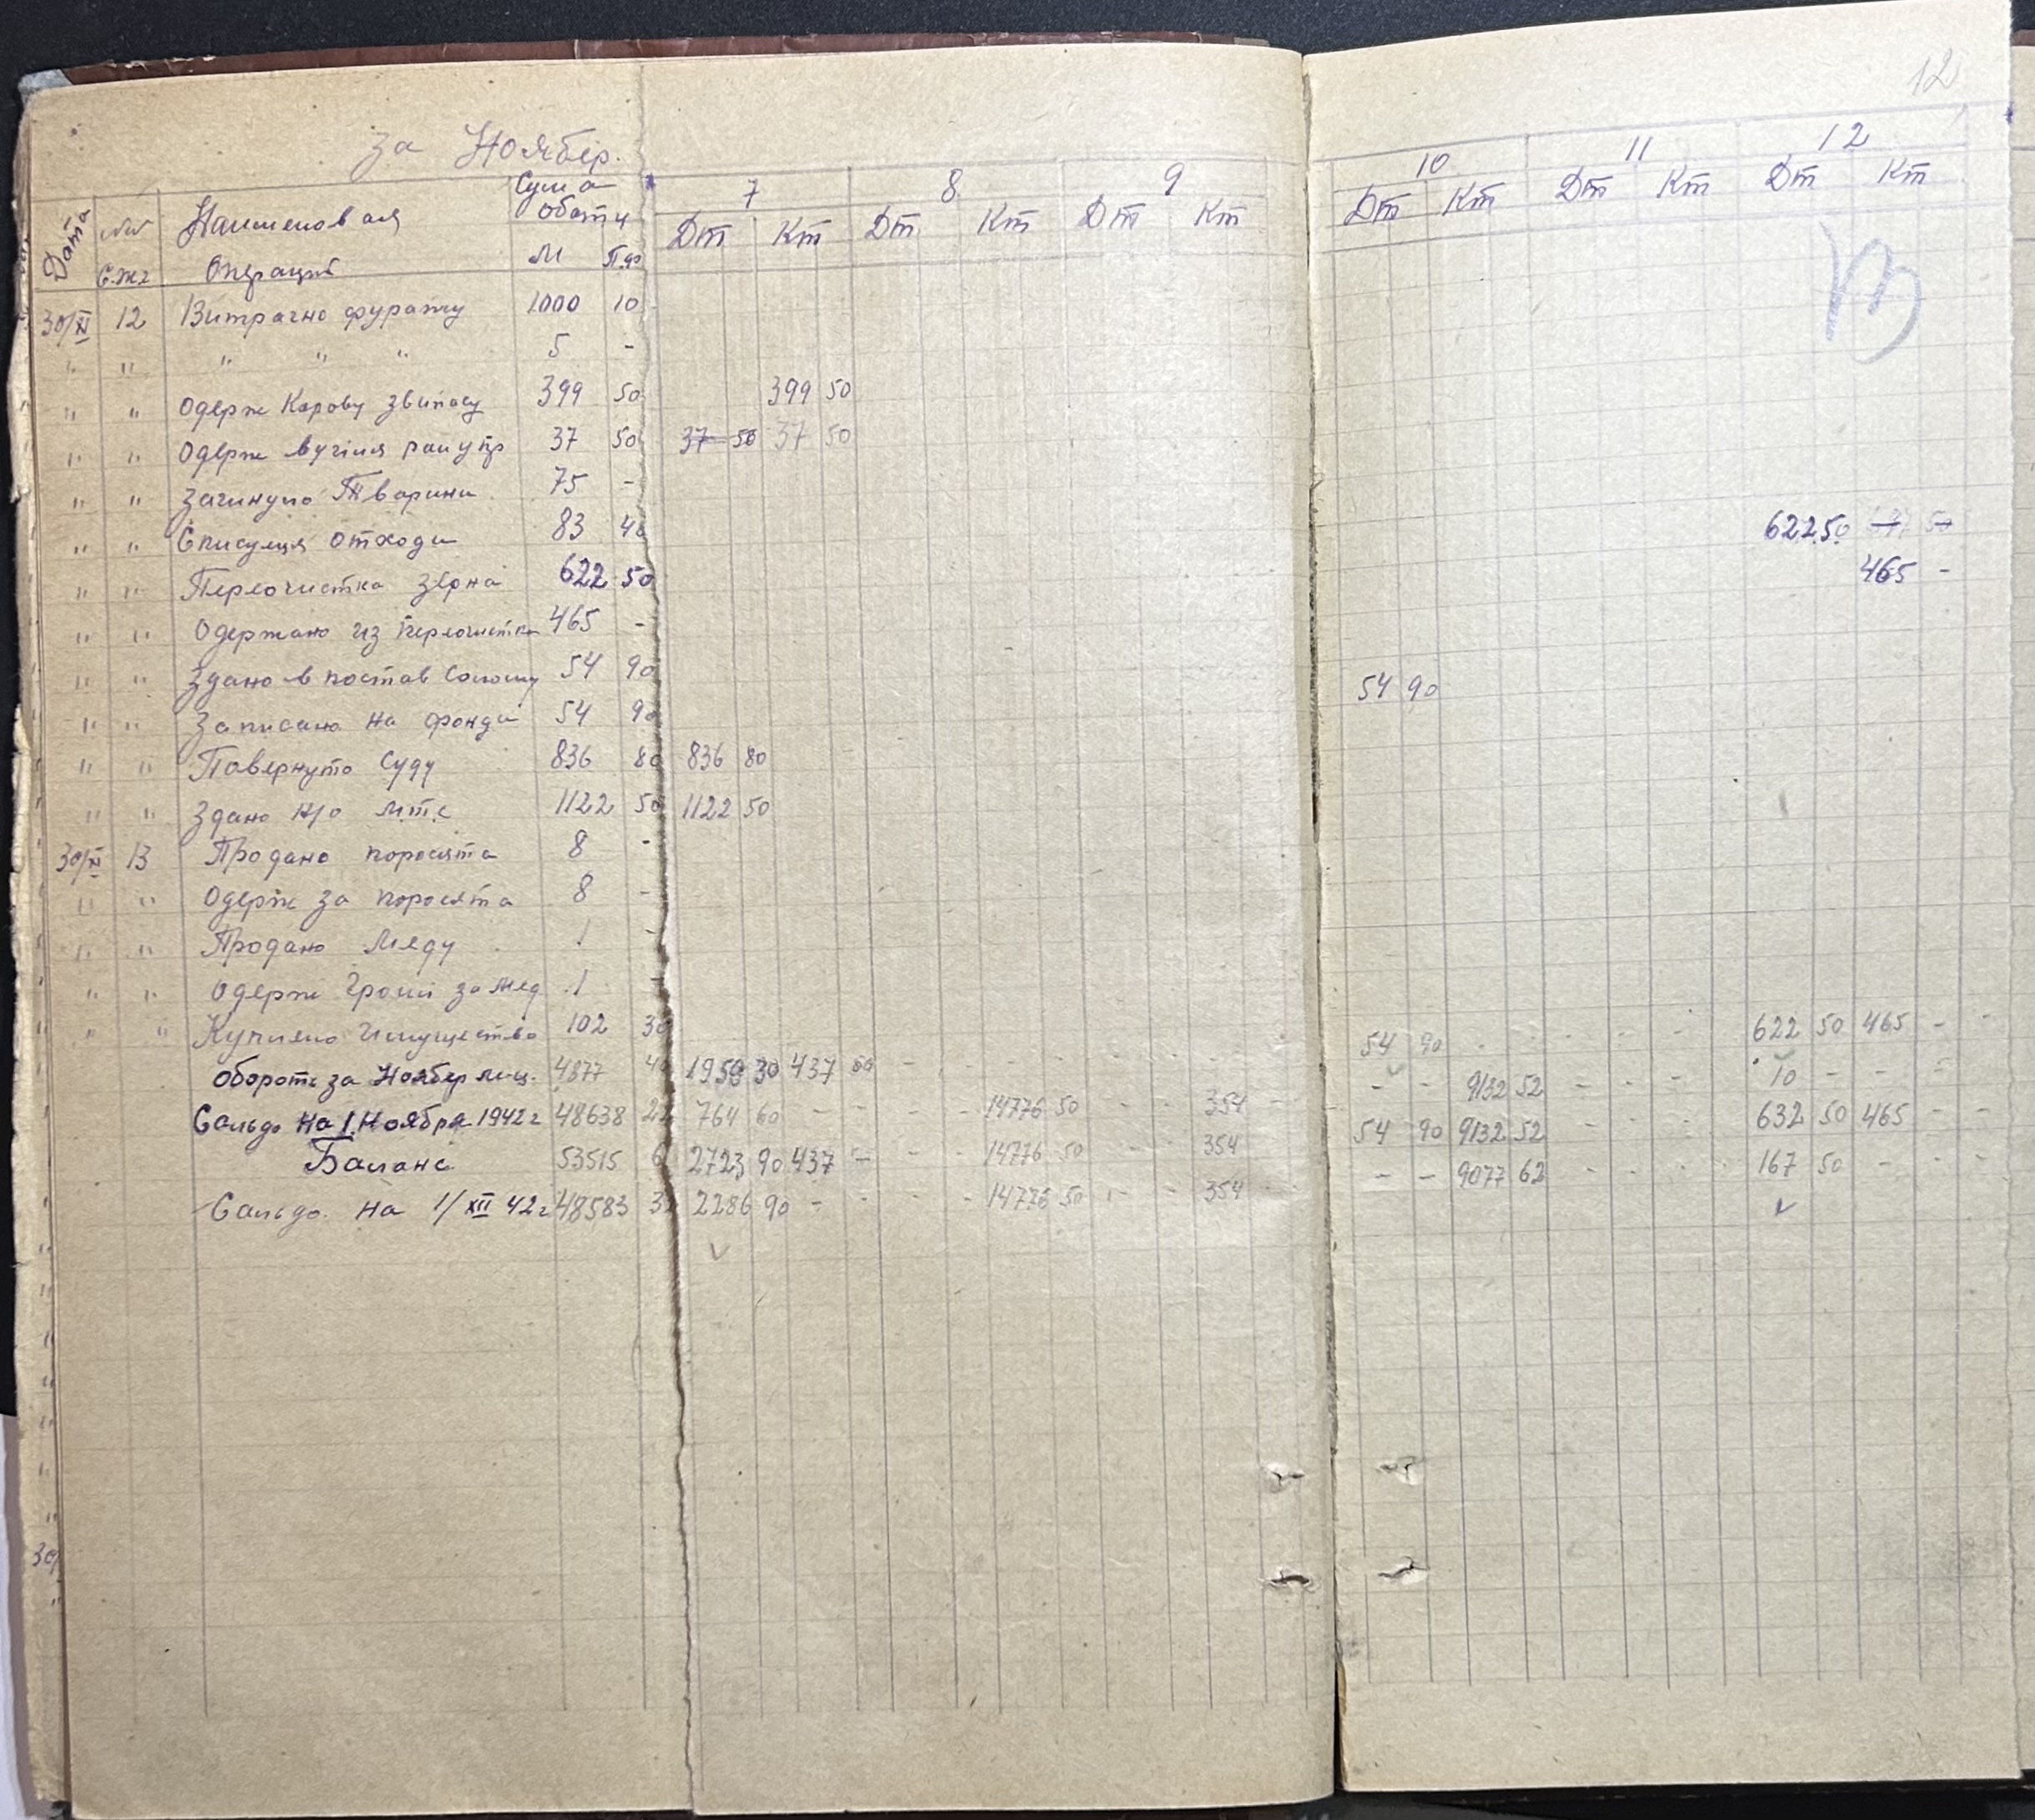 12
за Ноябер.
Дата №№ С.Жг Наименовая Операций Сума обати М П.ф 7 Дт Кт 8 Дт Кт 9 Дт Кт 10 Дт Кт 11 Дт Кт 12 Дт Кт
30/XI 12 Витрачно фуражу 1000 10
" " " " " 5 -
" " Одерж Корову звипасу 399 50 399 50
" " Одерж вугілля 37 50 37 50 37 50
" " Загинуло Тварини 75 -
" " Списуеця отходи 83 40 622 50
" " Переочистка зерна 622 50 465 -
" " Одержано из переочистки 465 -
" " Здано в постав Солому 54 90 54 90
" " Записано на фонди 54 90
" " Повернуто Суду 836 80 836 80
" " Здано н/о м.т.с 1122 50 1122 50
30/XI 13 Продано поросята 8 -
" " Одерж за поросята 8 -
" " Продано Меду 1 -
" " Одерж Гроши за мед 1 -
" " Куплено Имущество 102 30
Оборот за Ноябер м-ц. 4877 40 1959 30 437 - - - - - 54 90 - - - - 622 50 465 -
Сальдо на 1 Ноября 1942 г 48638 22 764 60 - - - - 14776 50 - - 354 - - - 9132 52 - - - - 10 - - -
Баланс 53515 62 2723 90 437 - - - 14776 50 - - 354 54 90 9132 52 - - - - 632 50 465 -
Сальдо на 1/XII 42 г 48583 32 2286 90 - - - - 14776 50 - - 354 - - 9077 62 - - - - 167 50 - -